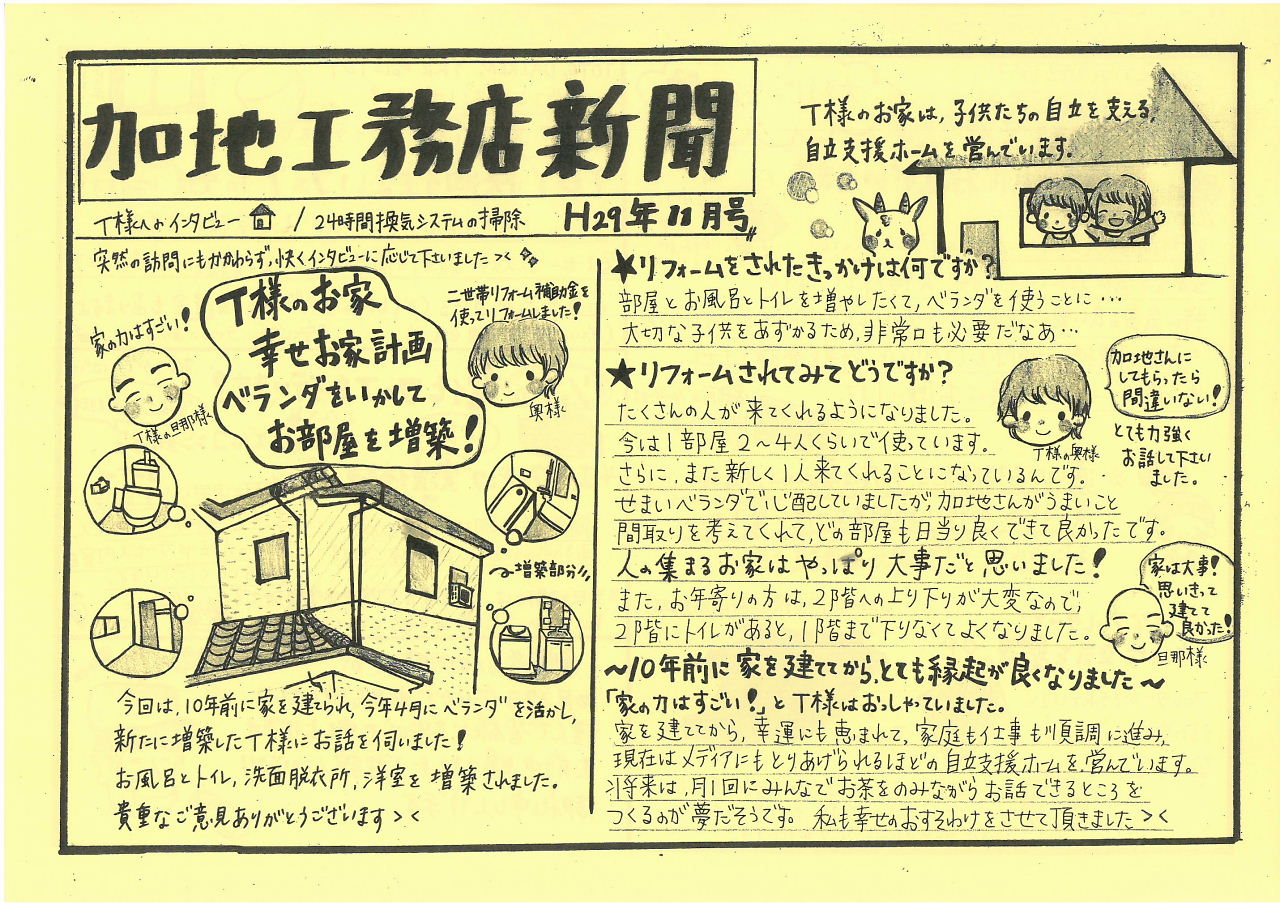 加地工務店新聞
T様へのインタビュー / 24時間換気システムの掃除 H29年11月号
突然の訪問にもかかわらず、快くインタビューに応じて下さいました><
家の力はすごい!
T様の旦那様
T様のお家
幸せお家計画
ベランダをいかして
お部屋を増築!
二世帯リフォーム補助金を
使ってリフォームしました!
奥様
増築部分!!
今回は、10年前に家を建てられ、今年4月にベランダを活かし、
新たに増築したT様にお話を伺いました!
お風呂とトイレ、洗面脱衣所、洋室を増築されました。
貴重なご意見ありがとうございます><
T様のお家は、子供たちの自立を支える、
自立支援ホームを営んでいます。
★リフォームをされたきっかけは何ですか?
部屋とお風呂とトイレを増やしたくて、ベランダを使うことに…
大切な子供をあずかるため、非常口も必要だなあ…
★リフォームされてみてどうですか?
たくさんの人が来てくれるようになりました。
今は1部屋2〜4人くらいで使っています。
さらに、また新しく1人来てくれることになっているんです。
せまいベランダで心配していましたが、加地さんがうまいこと
間取りを考えてくれて、どの部屋も日当り良くできて良かったです。
人の集まるお家はやっぱり大事だと思いました!
また、お年寄りの方は、2階への上り下りが大変なので、
2階にトイレがあると、1階まで下りなくてよくなりました。
T様の奥様
加地さんに
してもらったら
間違いない!
とても力強く
お話して下さい
ました。
家は大事!
思いきって
建てて
良かった!
旦那様
〜10年前に家を建ててから、とても縁起が良くなりました〜
「家の力はすごい!」とT様はおっしゃていました。
家を建ててから、幸運にも恵まれて、家庭も仕事も順調に進み、
現在はメディアにもとりあげられるほどの自立支援ホームを営んでいます。
将来は、月1回にみんなでお茶をのみながらお話できるところを
つくるのが夢だそうです。 私も幸せのおすそわけをさせて頂きました><